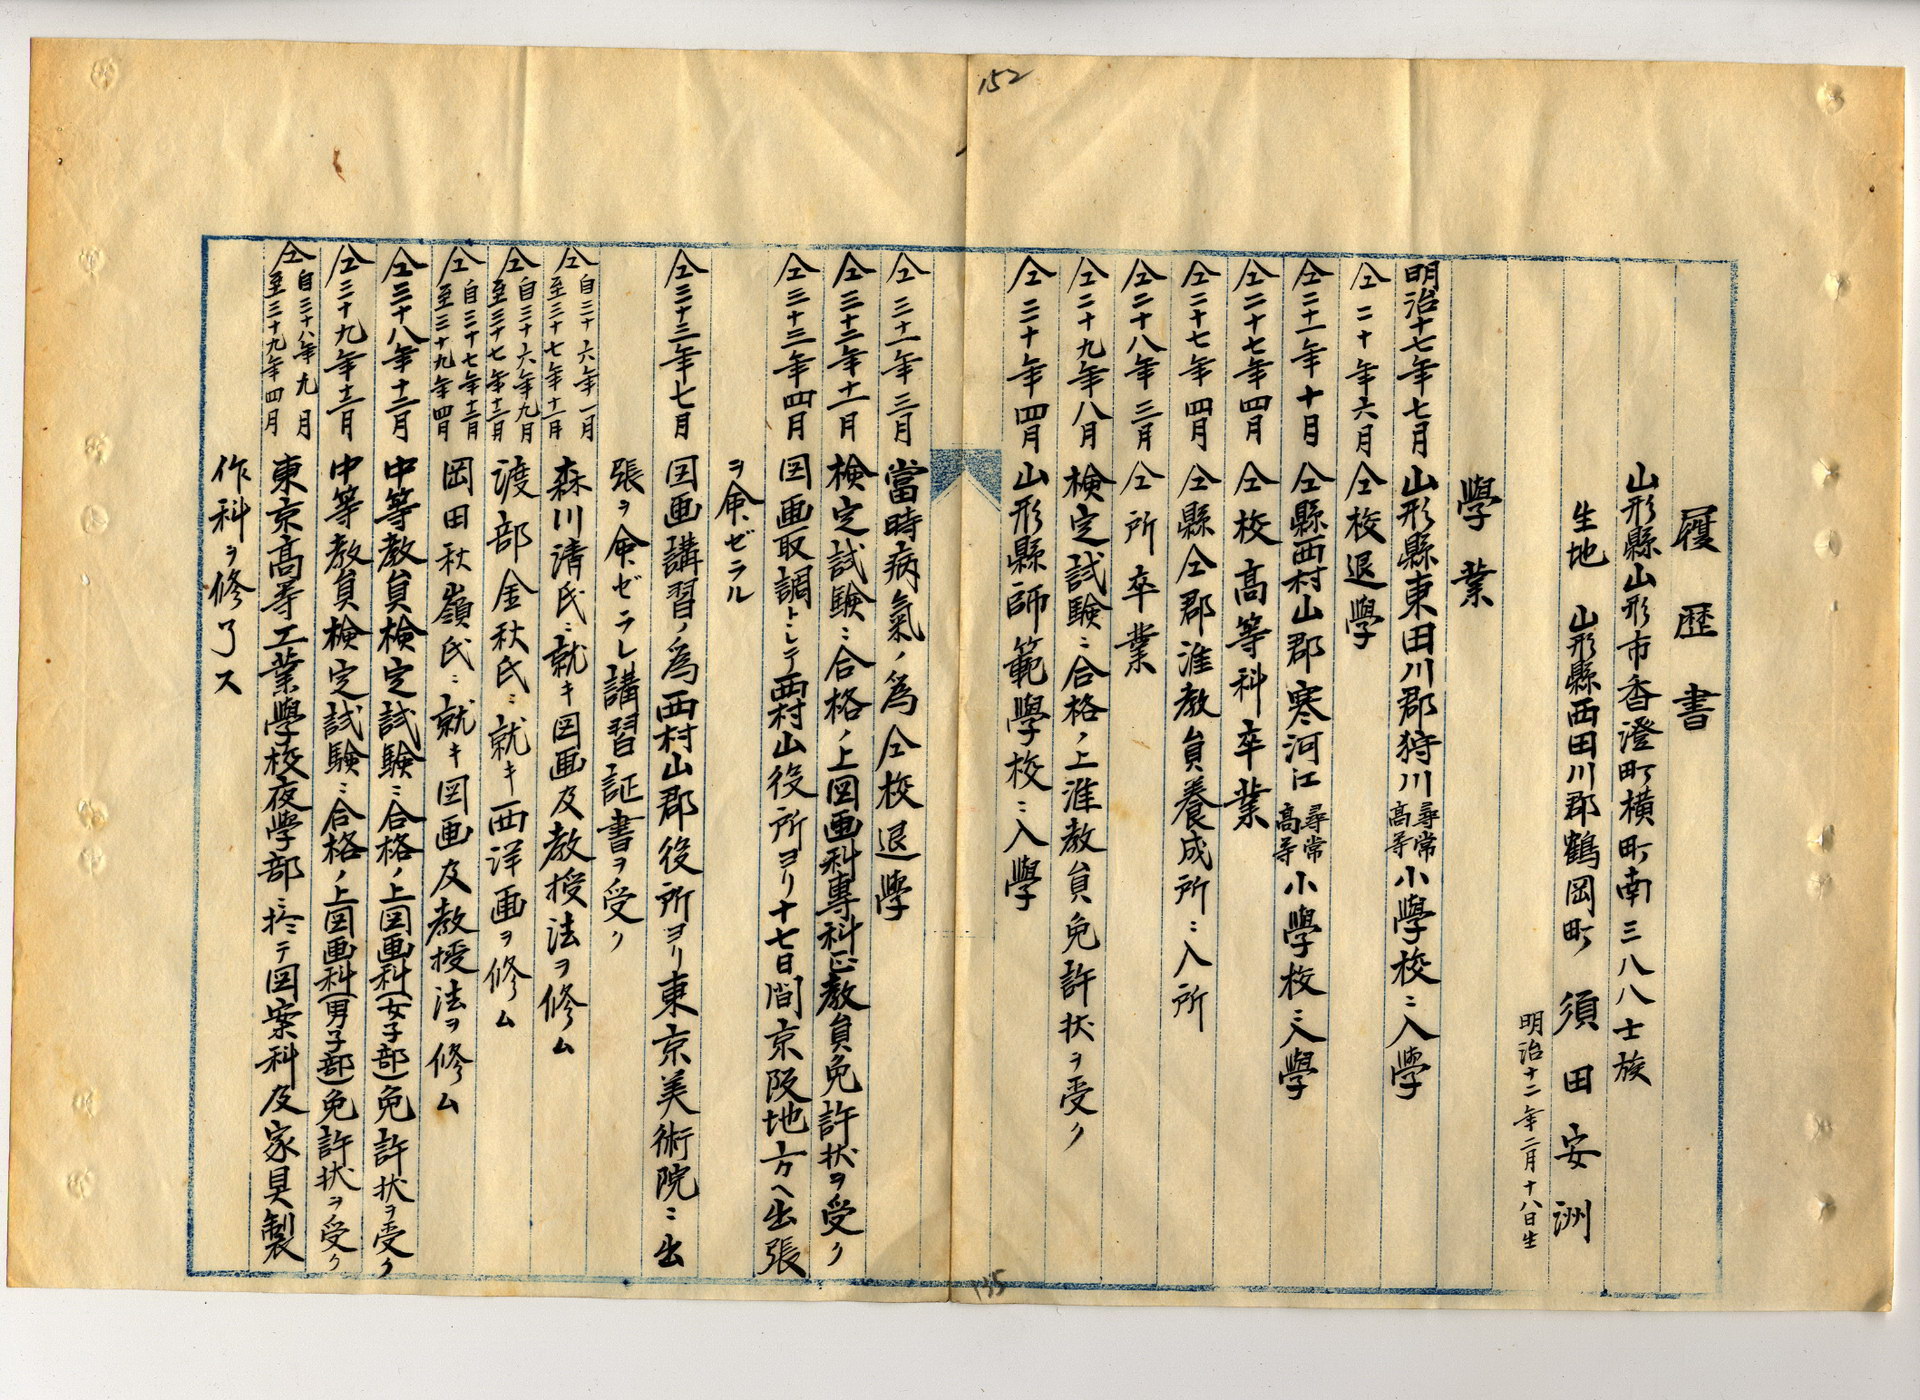 152
履歴書
山形縣山形市香澄町横町南三八八士族
生地 山形縣西田川郡鶴岡町 須田安洲
明治十二年二月十八日生
學業
明治十七年七月 山形縣東田川郡狩川尋常高等小學校ニ入學
仝二十年六月 仝校退學
仝二十一年十月 仝縣西村山郡寒河江尋常高等小學校ニ入學
仝二十七年四月 仝校高等科卒業
仝二十七年四月 仝縣仝郡准教員養成所ニ入所
仝二十八年三月 仝所卒業
仝二十九年八月 検定試験ニ合格ノ上准教員免許状ヲ受ク
仝三十年四月 山形縣師範學校ニ入學
仝三十一年三月 當時病氣ノ為仝校退學
仝三十二年十一月 検定試験ニ合格ノ上図画科專科正教員免許状ヲ受ク
仝三十三年四月 図画取調トシテ西村山役所ヨリ十七日間京阪地方ヘ出張
ヲ命ゼラル
仝三十三年七月 図画講習ノ為西村山郡役所ヨリ東京美術院ニ出
張ヲ命ゼラレ講習証書ヲ受ク
仝自三十六年一月至三十七年十一月 森川清氏ニ就キ図画及教授法ヲ修ム
仝自三十六年九月至三十七年十二月 渡部金秋氏ニ就キ西洋画ヲ修ム
仝自三十七年十二月至三十九年四月 岡田秋嶺氏ニ就キ図画及教授法ヲ修ム
仝三十八年十二月 中等教員検定試験ニ合格ノ上図画科(女子部)免許状ヲ受ク
仝三十九年十二月 中等教員検定試験ニ合格ノ上図画科(男子部)免許状ヲ受ク
仝自三十八年九月至三十九年四月 東京高等工業學校夜学部ニ於テ図案科及家具製
作科ヲ修了ス
135